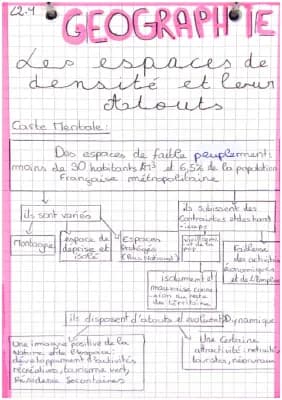 L2.4
GEOGRAPHIE
Les espaces de
densité et leur
Atouts
Carte Mentale:
Des espaces de faible peuplement:
moins de 30 habitants/km² et 6,5% de la population
Française métropolitaine
ils sont variés
ils subissent des
contraintes et des hand
-icaps
Montagne
espace de
deprise et
isolé
Espaces
protégés
(Parc National)
vieillissement
et de la
Faiblesse
des activités
économiques
et de l'emploi
isolement et
mauvaise conne
-xion au reste
du territoire
ils disposent d'atouts et évoluent
Dynamique
Une image positive de la
Nature et de l'espace:
développement d'activités
récréatives, tourisme vert,
Residence Secondaires
Une Certaine
attractivité: retraités
touristes, néoruraux